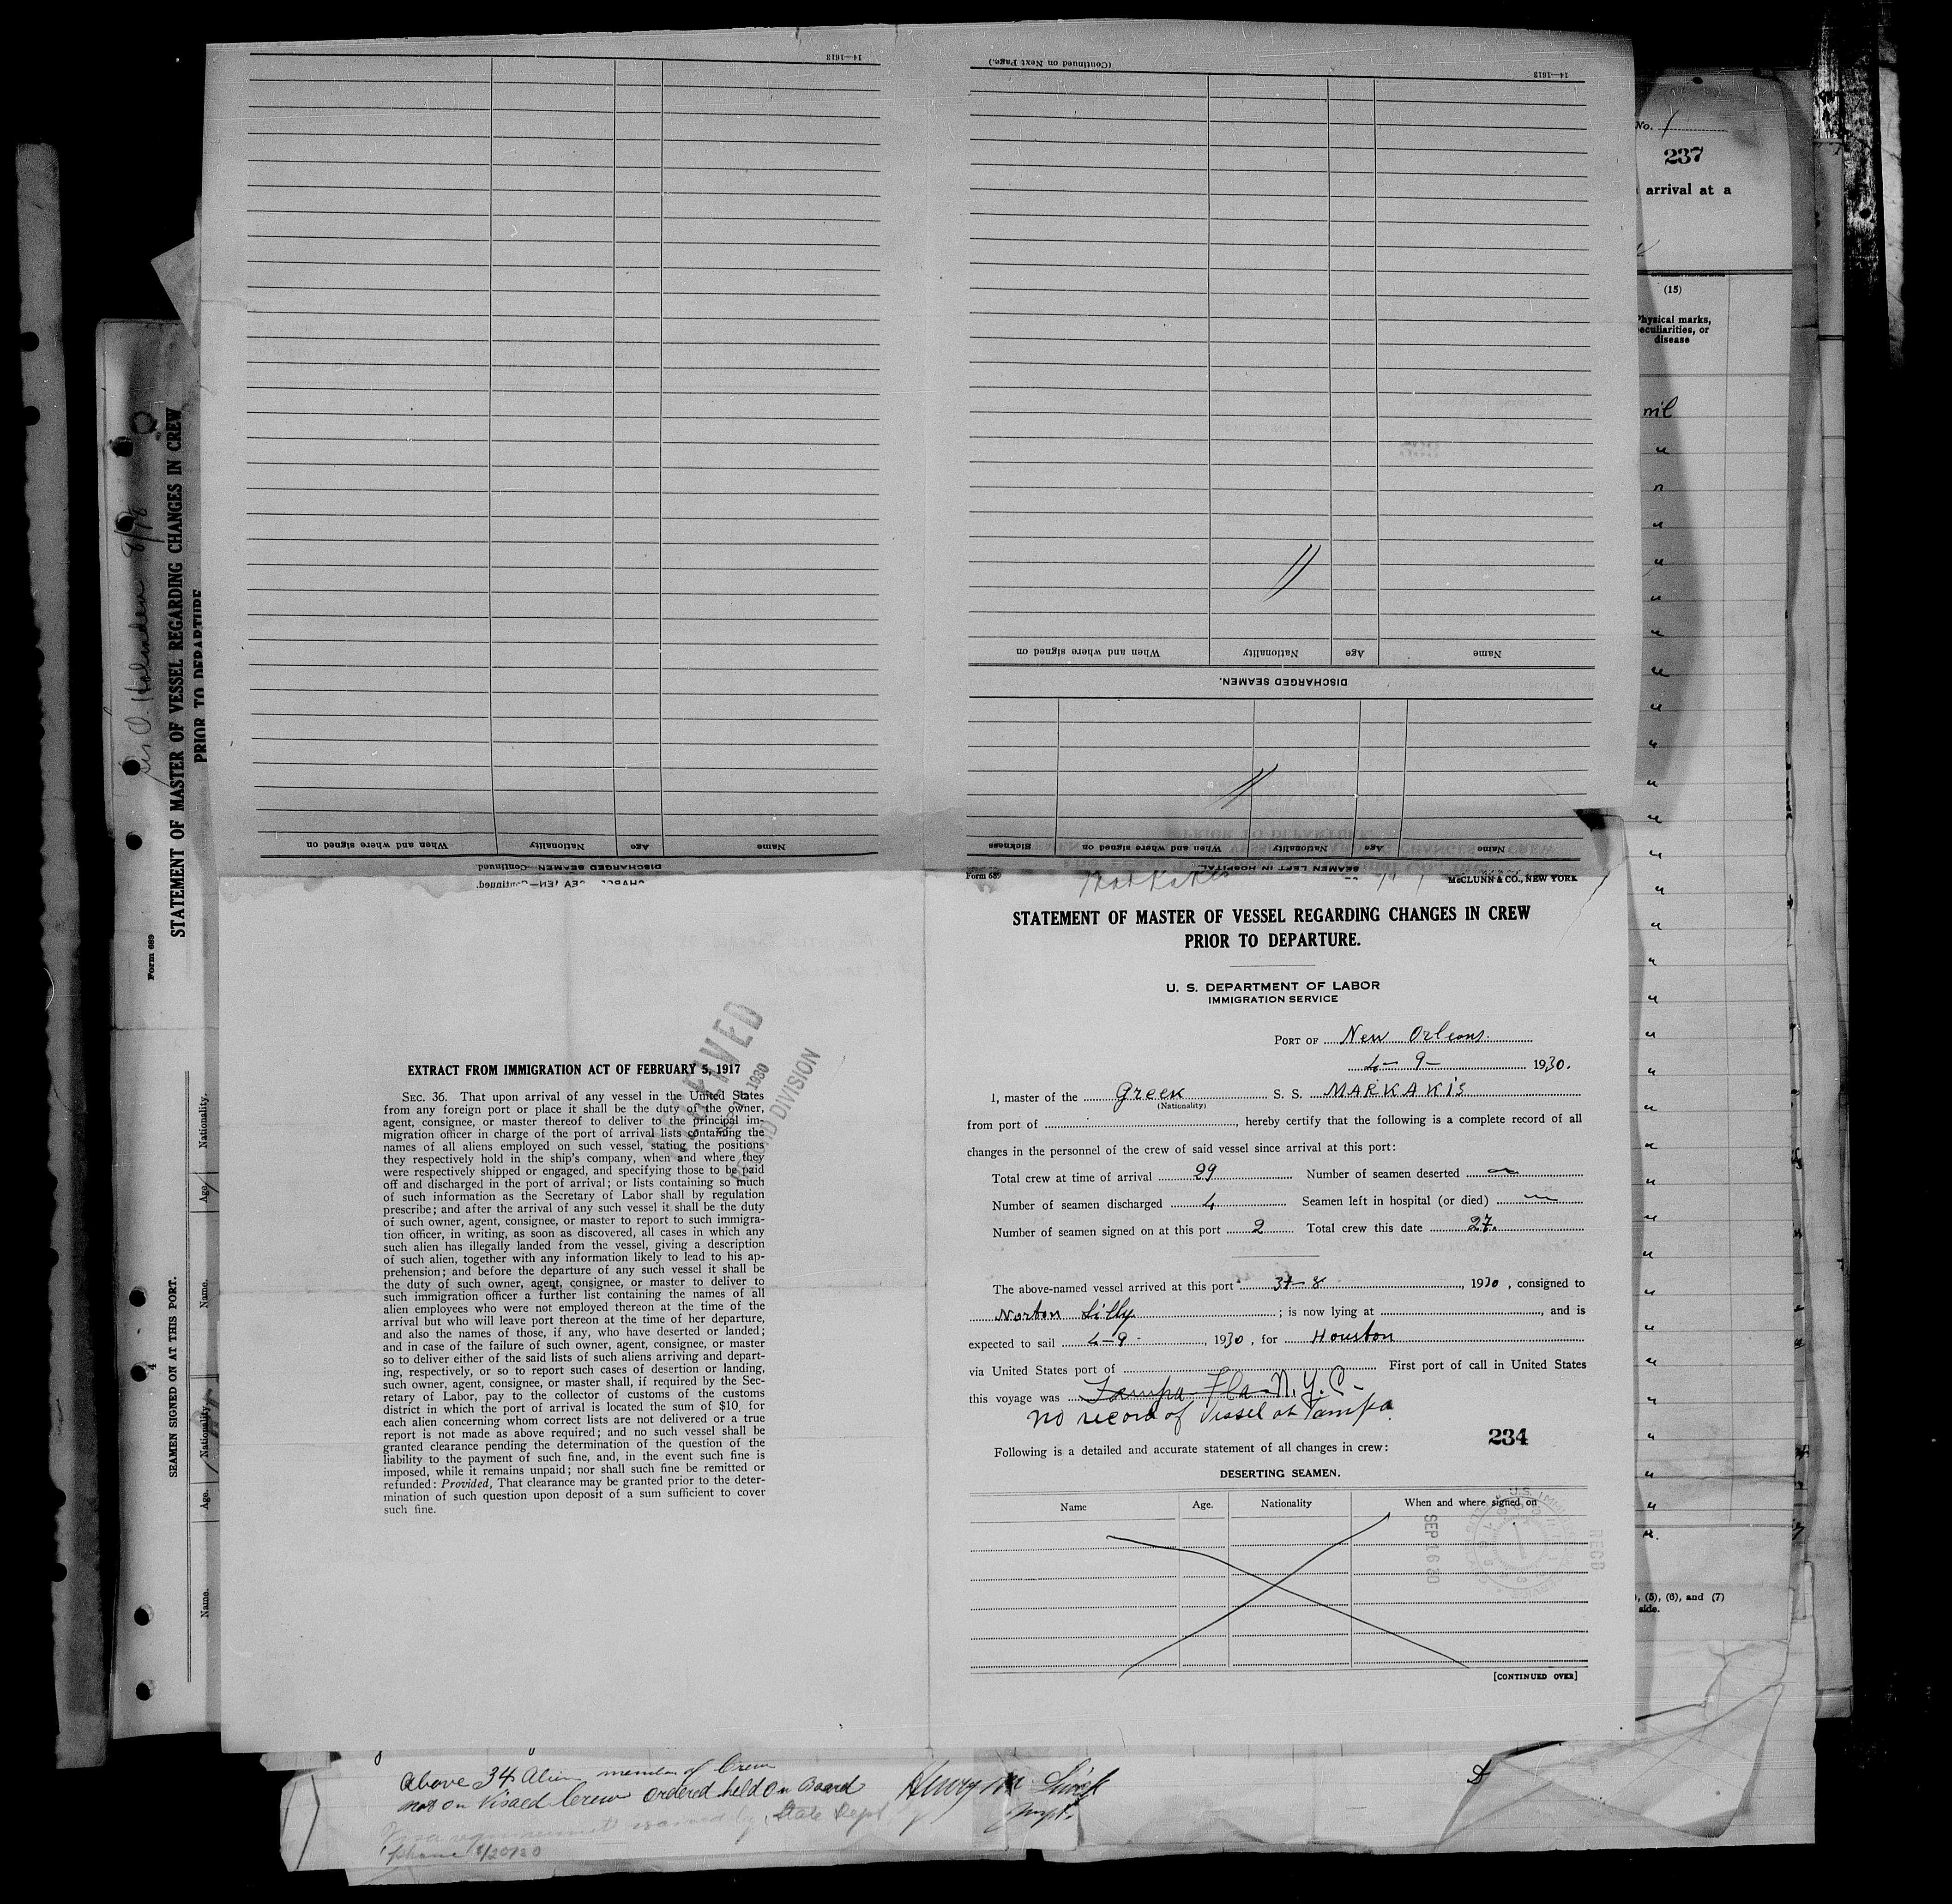 14—1613
(Continued on Next Page.)
14—1613
When and where signed on
Nationality
Age
Name
DISCHARGED SEAMEN.
When and where signed on
Nationality
Age
Name
DISCHARGED SEAMEN—Continued
Sickness
When and where signed on
Nationality
Age
Name
SEAMEN LEFT IN HOSPITAL.
No. 1
237
arrival at a
(15)
Physical marks,
peculiarities, or
disease
nil
, (5), (6), and (7)
side.
Form 689
STATEMENT OF MASTER OF VESSEL REGARDING CHANGES IN CREW
PRIOR TO DEPARTURE
SEAMEN SIGNED ON AT THIS PORT.
Name.
Age.
Nationality.
Name.
Age.
Nationality.
4
EXTRACT FROM IMMIGRATION ACT OF FEBRUARY 5, 1917
SEC. 36. That upon arrival of any vessel in the United States
from any foreign port or place it shall be the duty of the owner,
agent, consignee, or master thereof to deliver to the principal im-
migration officer in charge of the port of arrival lists containing the
names of all aliens employed on such vessel, stating the positions
they respectively hold in the ship's company, when and where they
were respectively shipped or engaged, and specifying those to be paid
off and discharged in the port of arrival; or lists containing so much
of such information as the Secretary of Labor shall by regulation
prescribe; and after the arrival of any such vessel it shall be the duty
of such owner, agent, consignee, or master to report to such immigra-
tion officer, in writing, as soon as discovered, all cases in which any
such alien has illegally landed from the vessel, giving a description
of such alien, together with any information likely to lead to his ap-
prehension; and before the departure of any such vessel it shall be
the duty of such owner, agent, consignee, or master to deliver to
such immigration officer a further list containing the names of all
alien employees who were not employed thereon at the time of the
arrival but who will leave port thereon at the time of her departure,
and also the names of those, if any, who have deserted or landed;
and in case of the failure of such owner, agent, consignee, or master
so to deliver either of the said lists of such aliens arriving and depart-
ing, respectively, or so to report such cases of desertion or landing,
such owner, agent, consignee, or master shall, if required by the Sec-
retary of Labor, pay to the collector of customs of the customs
district in which the port of arrival is located the sum of $10, for
each alien concerning whom correct lists are not delivered or a true
report is not made as above required; and no such vessel shall be
granted clearance pending the determination of the question of the
liability to the payment of such fine, and, in the event such fine is
imposed, while it remains unpaid; nor shall such fine be remitted or
refunded: Provided, That clearance may be granted prior to the deter-
mination of such question upon deposit of a sum sufficient to cover
such fine.
RECEIVED
1930
DIVISION
Form 689
Markakis
McCLUNN & CO., NEW YORK
STATEMENT OF MASTER OF VESSEL REGARDING CHANGES IN CREW
PRIOR TO DEPARTURE.
U. S. DEPARTMENT OF LABOR
IMMIGRATION SERVICE
PORT OF New Orleans.
4-9- 1930.
I, master of the Greek S. S. MARKAKIS
(Nationality)
from port of , hereby certify that the following is a complete record of all
changes in the personnel of the crew of said vessel since arrival at this port:
Total crew at time of arrival 29 Number of seamen deserted —
Number of seamen discharged 4 Seamen left in hospital (or died) —
Number of seamen signed on at this port 2 Total crew this date 27.
The above-named vessel arrived at this port 31-8 , 1930 , consigned to
Norton Lilly ; is now lying at , and is
expected to sail 4-9- , 1930 , for Houston
via United States port of First port of call in United States
this voyage was Tampa Fla N.Y.C-
No record of Vessel at Tampa.
234
Following is a detailed and accurate statement of all changes in crew:
DESERTING SEAMEN.
Name Age. Nationality When and where signed on
SEP 16 30
RECD
[CONTINUED OVER]
above 34 Alien member of Crew
not on Visaed Crew ordered held on Board
State Dept
phone 8/20/30
Henry M
Inspt.